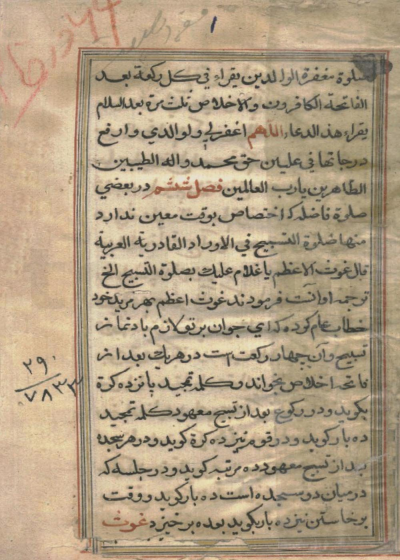 ۱
صلوة مغفرة الوالدين يقراء فی كل ركعة بعد
الفاتحة الكافرون والاخلاص ثلث مرة بعد السلام
يقراء هذ الدعاء اللهم اغفرلی ولوالدی وارفع
درجاتها فی عليين حق محمد واله الطيبين
الطاهرين يارب العالمين فصل ششم در بعضی
صلوة فاضله كه اختصاص بوقت معين ندارد
منها صلوة التسبيح فی الاوراد القادرية العربية
قال غوث الاعظم ياغلام عليك بصلوة التسبيح الخ
ترجمه او انست فرمودند غوث اعظم مر خود
خطاب عام كرده كه ای جوان بر تو لازم باد نماز
تسبيح وآن چهار ركعت است در هر يك بعد از
فاتحه اخلاص بخواند وكلمه تمجيد پانزده كرة
بگويد ودر ركوع بعد از تسبيح معهود كلمه تمجيد
ده بار گويد ودر قومه نيز ده كرة گويد ودر هر سجده
بعد از تسبيح معهود ده مرتبه گويد ودر جلسه كه
درميان دو سجده است ده بار گويد ووقت
برخاستن نيز ده بار بگويد بعده برخيزد غوث
۲۹۰
۷۸۳۳